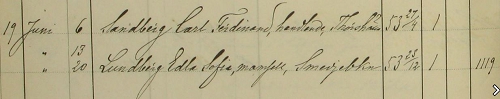 19 Juni 6 Sandberg Carl Ferdinand, handlande, 53 27/4 1
" 13
" 20 Lundberg Edla Sofia, mamsell, Smedjebkn 53 23/12 1 1119